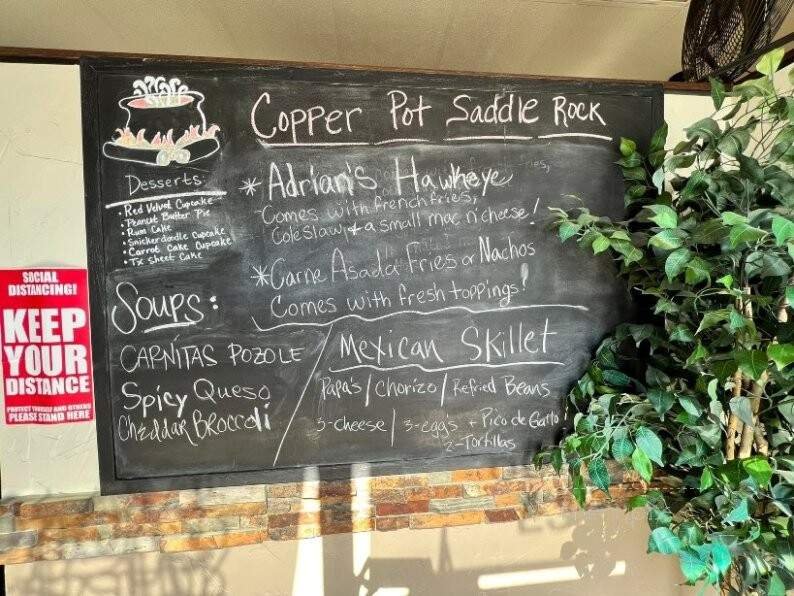 Copper Pot Saddle Rock
Desserts:
• Red Velvet Cupcake
• Peanut Butter Pie
• Rum Cake
• Snickerdoodle Cupcake
• Carrot Cake Cupcake
• Tx Sheet Cake
* Adrian's Hawkeye
Comes with french fries,
Coleslaw, & a small mac n' cheese!
* Carne Asada Fries or Nachos
Comes with fresh toppings!
Soups:
CARNITAS POZOLE
Spicy Queso
Cheddar Broccoli
Mexican Skillet
Papa's / Chorizo / Refried Beans
3-cheese / 3-eggs + Pico de Gallo!
2-Tortillas
SOCIAL
DISTANCING!
KEEP
YOUR
DISTANCE
PROTECT YOURSELF AND OTHERS
PLEASE STAND HERE